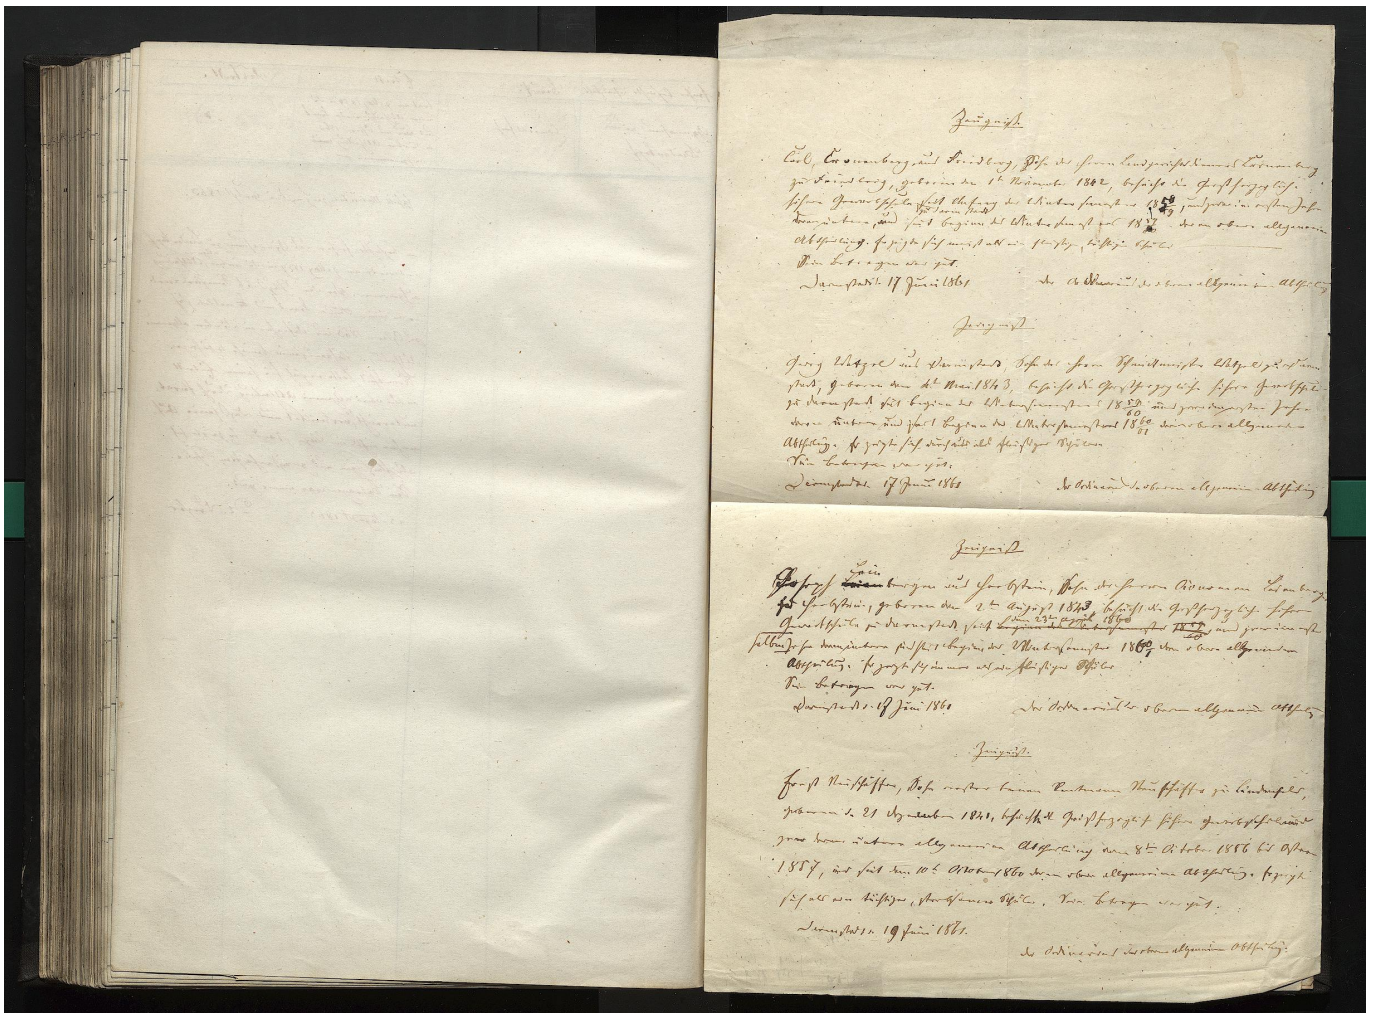 Zeugniß.
Carl Cronenberg aus Friedberg, Sohn des Herrn Landgerichtsdieners Cronenberg
zu Friedberg, geboren den 1ten November 1842, besucht die Großherzogliche
höhere Gewerbschule seit Anfang des Wintersemesters 18 58/59, und zwar im ersten Jahr
zu Darmstadt
deren untere, und seit Beginn des Wintersemesters 18 deren obere allgemeine
Abtheilung. Er zeigte sich meist als ein fleißiger, tüchtiger Schüler
Sein Betragen war gut.
Darmstadt 17 Juni 1861 Der Ordinarius der oberen allgemeinen Abtheilung
Zeugniß
Georg Wetzel aus Darmstadt, Sohn des Herrn Schreinermeister Wetzel zu Darm
stadt, geboren den 4ten Mai 1843, besucht die Großherzogliche höhere Gewerbschule
zu Darmstadt seit Beginn des Wintersemesters 18 59/60 und zwar im ersten Jahre
deren untere und seit Beginn des Wintersemesters 18 60/61 deren obere allgemeine
Abtheilung. Er zeigte sich durchaus als fleißiger Schüler
Sein Betragen war gut.
Darmstadt 17 Juni 1861 Der Ordinarius der oberen allgemeinen Abtheilung
Zeugniß
Joseph bergen aus Herbstein, Sohn des Herrn
zu Herbstein, geboren den 2ten August 1843 besucht die Großherzogliche höhere
den 23ten April 1860
Gewerbschule zu Darmstadt seit Beginn des Wintersemesters 18 59/60 und zwar im ersten
selben Jahre deren untere und seit Beginn des Wintersemesters 18 60/1 deren obere allgemeine
Abtheilung. Er zeigte sich immer als ein fleißiger Schüler
Sein Betragen war gut.
Darmstadt 18 Juni 1861 Der Ordinarius der oberen allgemeinen Abtheilung
Zeugniß.
Ernst Neuschäffer, Sohn Rentmann Neuschäffer zu Lindenfels,
geboren d. 21 Dezember 1841, besuchte die Großherzogliche höhere Gewerbschule und
zwar deren untere allgemeine Abtheilung vom 8ten October 1856 bis Ostern
1857, und seit dem 10ten October 1860 deren obere allgemeine Abtheilung. Er zeigte
sich als ein tüchtiger, strebsamer Schüler. Sein Betragen war gut.
Darmstadt 19 Juni 1861.
Der Ordinarius der oberen allgemeinen Abtheilung.